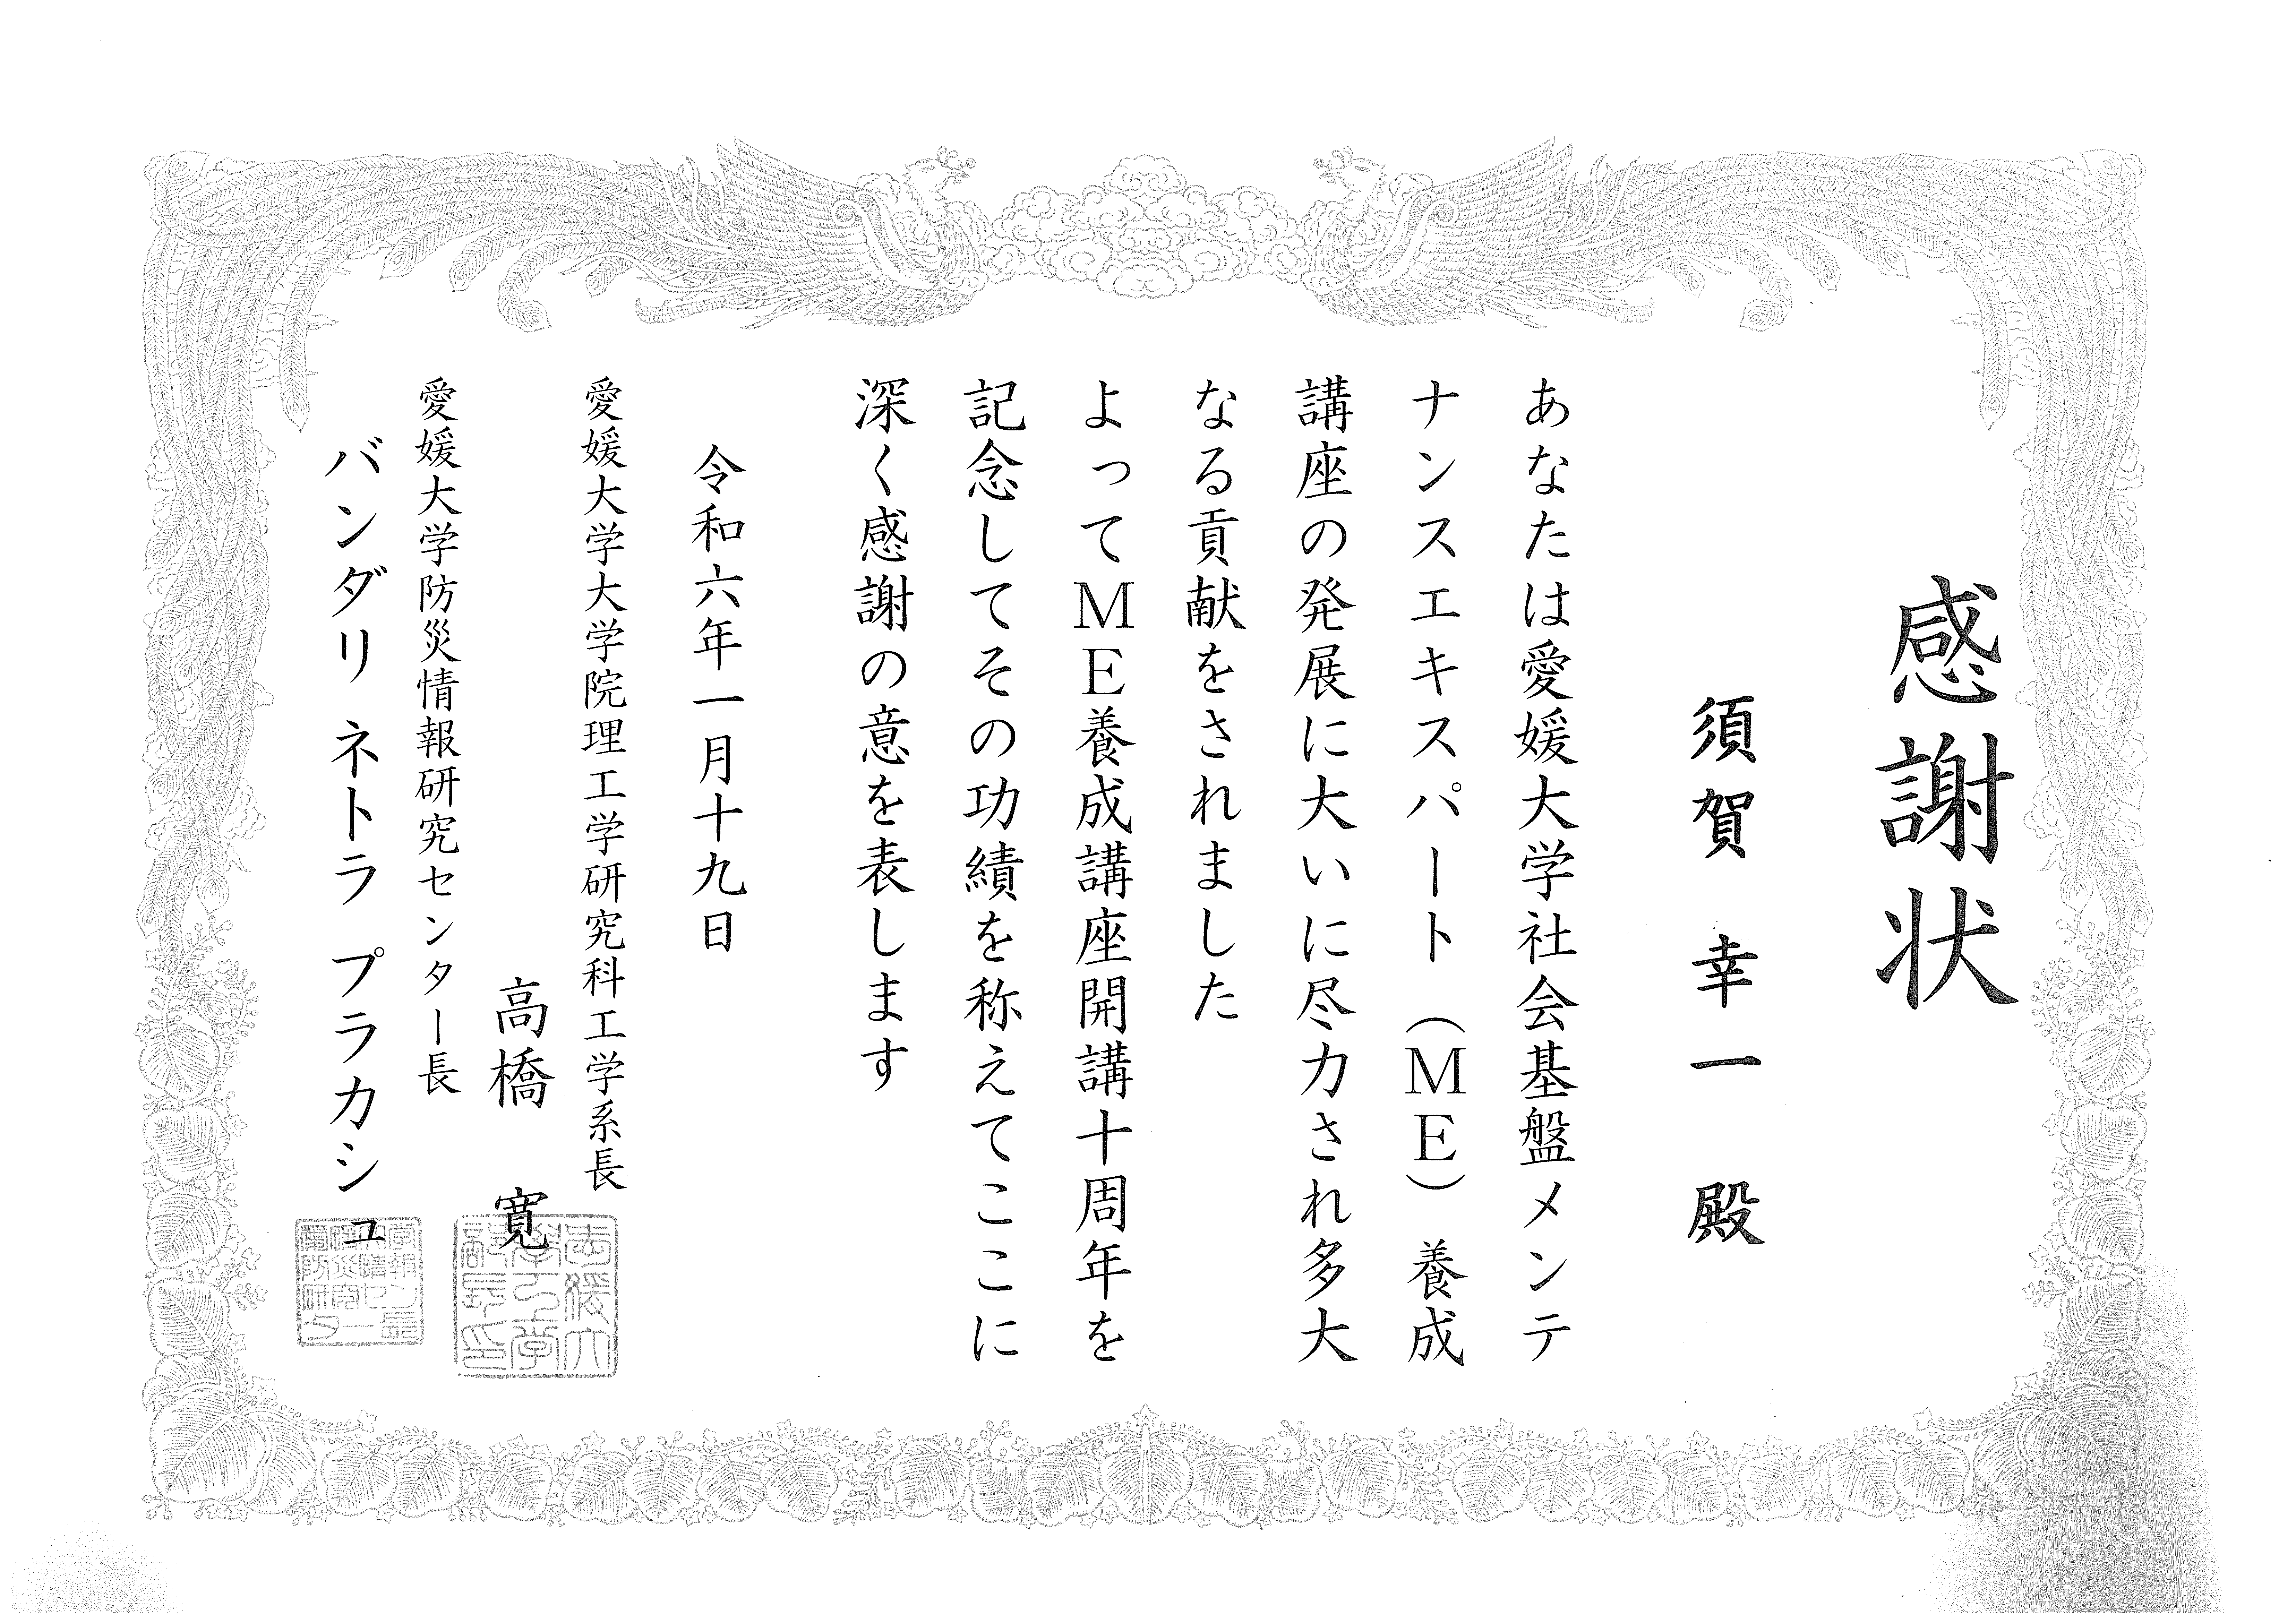 感謝状
須賀 幸一 殿
あなたは愛媛大学社会基盤メンテ
ナンスエキスパート（ＭＥ）養成
講座の発展に大いに尽力され多大
なる貢献をされました
よってＭＥ養成講座開講十周年を
記念してその功績を称えてここに
深く感謝の意を表します
令和六年一月十九日
愛媛大学大学院理工学研究科工学系長
高橋 寛
愛媛大学防災情報研究センター長
バンダリ ネトラ プラカシュ